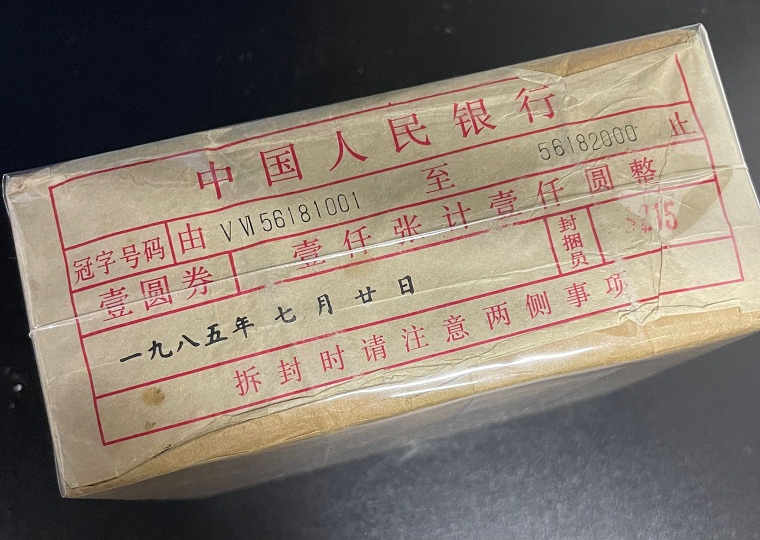 中国人民银行
冠字号码 由 V VI 56181001 至 56182000 止
壹圆券 壹仟张计壹仟圆整
封捆员
一九八五年 七月廿日
拆封时请注意两侧事项